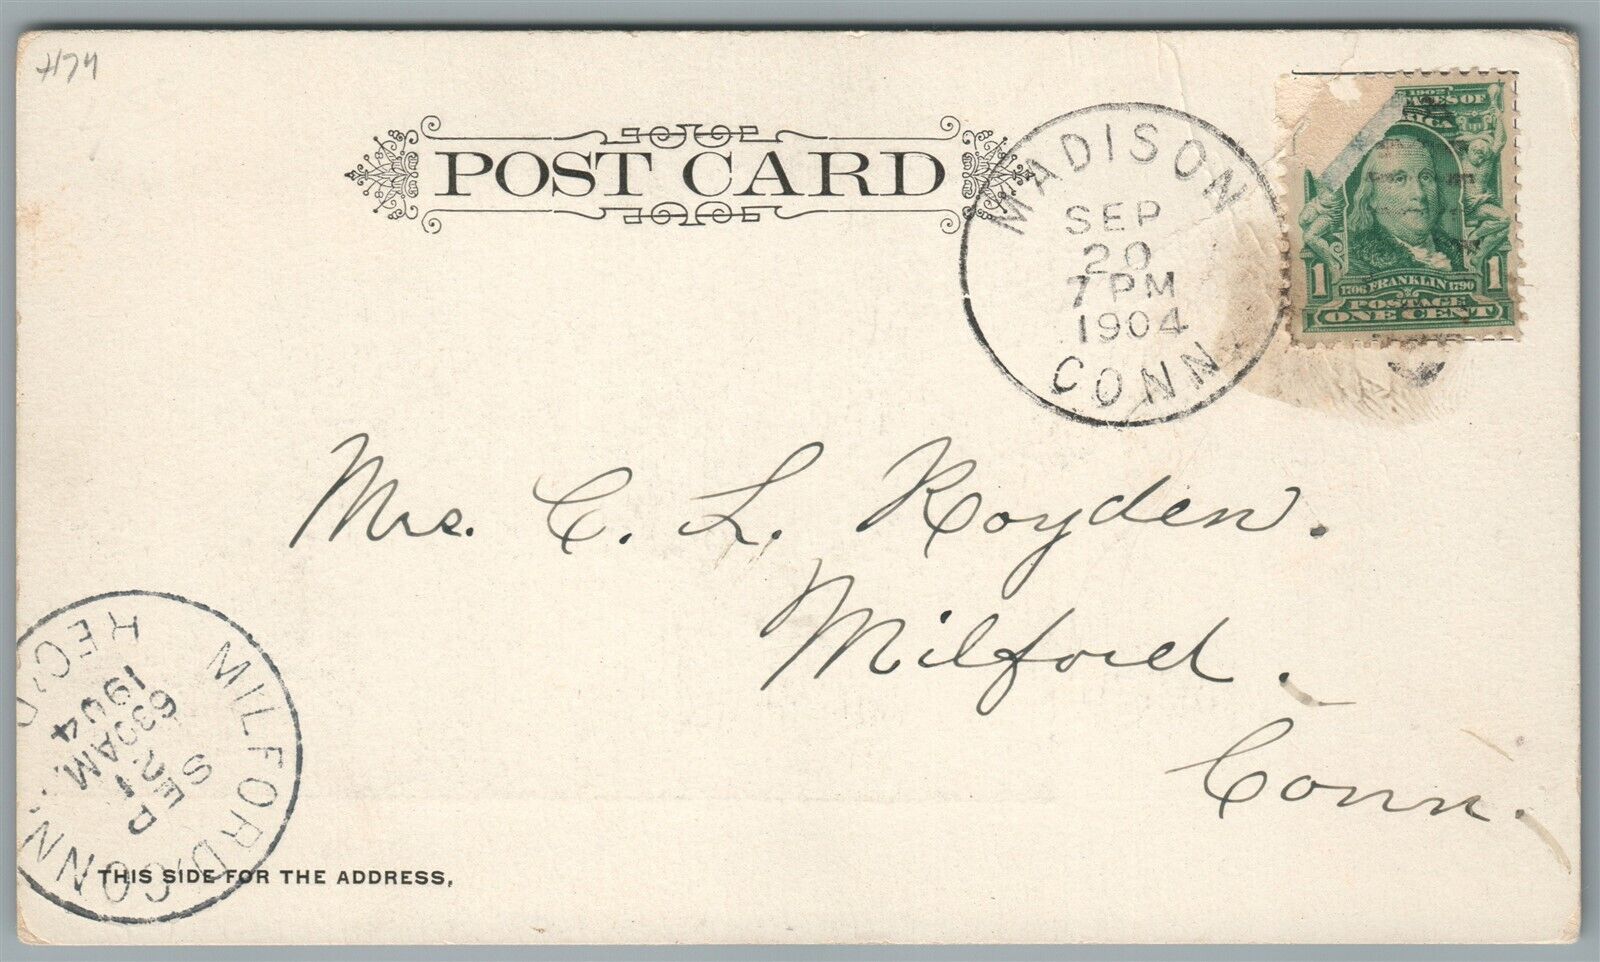 H74
POST CARD
MADISON
SEP
20
7 PM
1904
CONN.
1902
ATES OF
RICA
1 1
1706 FRANKLIN 1790
POSTAGE
ONE CENT
Mrs. C. L. Royden.
Milford.
Conn.
MILFORD, CONN.
SEP
21
630AM
1904
REC'D.
THIS SIDE FOR THE ADDRESS,